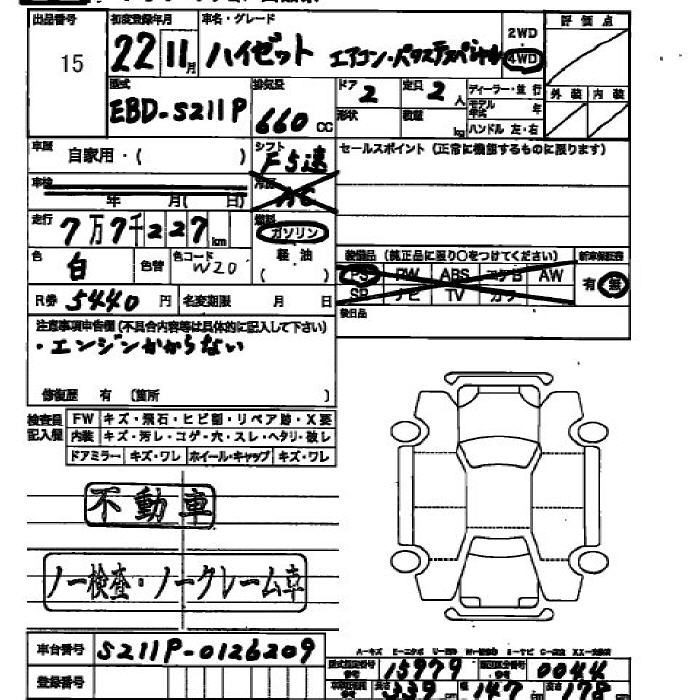 出品番号 初度登録年月 車名・グレード 評価点
15 22 11月 ハイゼット エアコン・パワステスペシャル 2WD 4WD
型式 排気量 ドア 定員 ディーラー・並行 外装 内装
EBD-S211P 660cc 2 2人 モデル年式 年
形状 積量 kg ハンドル 左・右
車歴 自家用・( ) シフト F5速 セールスポイント (正常に機能するものに限ります)
車検 年 月( 日) 冷房 AC
走行 7万7千227km 燃料 ガソリン
色 白 色替 色コード W20 軽油 ( )
装備品 (純正品に限り○をつけてください) 新車保証書
PS PW ABS エアB AW 有・無
SR ナビ TV カワ
R券 5440円 名変期限 月 日 後日品
注意事項申告欄 (不具合内容等は具体的に記入して下さい)
・エンジンかからない
修復歴 有 (箇所 )
検査員記入欄 FW キズ・飛石・ヒビ割・リペア跡・X要
内装 キズ・汚レ・コゲ・穴・スレ・ヘタリ・破レ
ドアミラー キズ・ワレ ホイール・キャップ キズ・ワレ
不動車
ノー検査・ノークレーム車
車台番号 S211P-0126209
A-キズ E-エクボ U-凹み W-補修跡 S-サビ C-腐食 XX-交換済
登録番号 型式指定番号 15979 類別区分番号 0044
長さ 339cm 幅 147cm 高さ 178